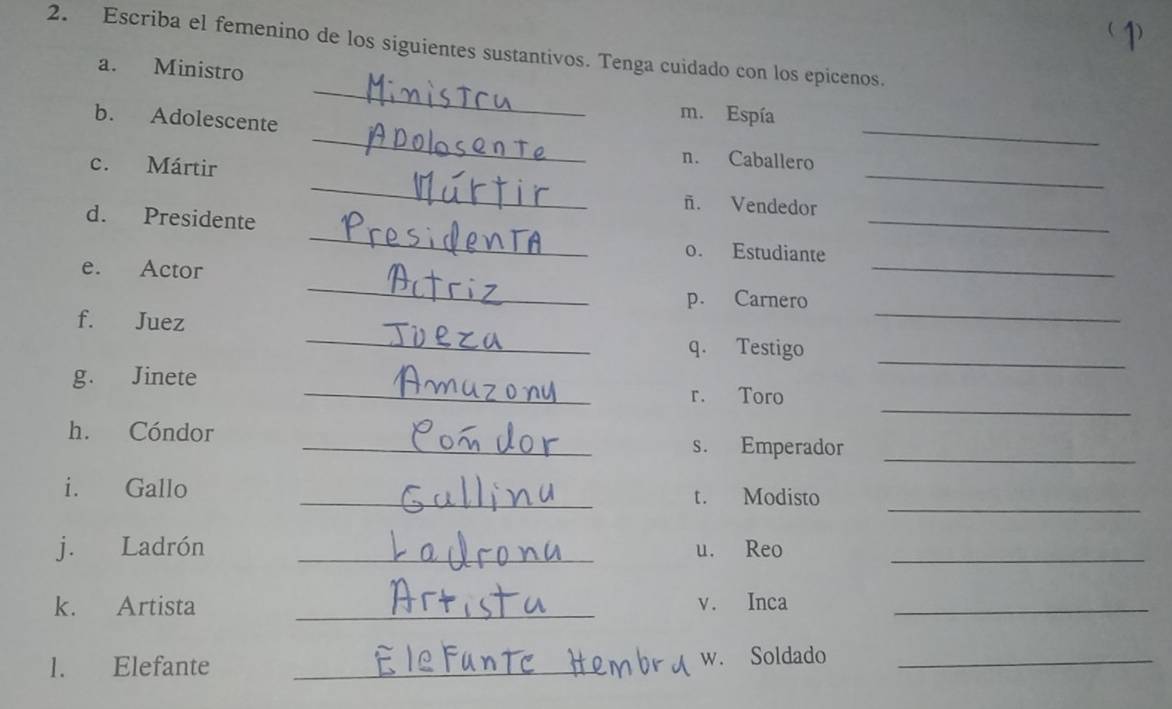 2. Escriba el femenino de los siguientes sustantivos. Tenga cuidado con los epicenos.
(1)
a. Ministro Ministra
b. Adolescente Adolosente
c. Mártir Mártir
d. Presidente Presidenta
e. Actor Actriz
f. Juez Jueza
g. Jinete Amazona
h. Cóndor Cóndor
i. Gallo Gallina
j. Ladrón Ladrona
k. Artista Artista
l. Elefante Elefante Hembra
m. Espía
n. Caballero
ñ. Vendedor
o. Estudiante
p. Carnero
q. Testigo
r. Toro
s. Emperador
t. Modisto
u. Reo
v. Inca
w. Soldado